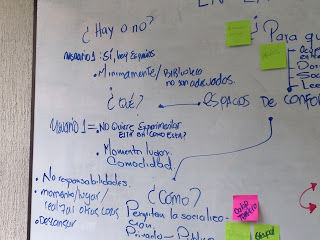 ¿Hay o no?
usuario 1: Sí, hay Espacios
• Minimamente/ Biblioteca
no son adecuados.
¿Qué?
ESPACIOS DE CONFOR
Usuario 1 = NO Quiere Experimentar
ESTÁ BIEN COMO ESTÁ?
• Momento lugar
Comodidad
• No responsabilidades.
• momento/lugar/
realizar otras cosas
• Descansar
¿Cómo?
Permitan la socialice-
Privado - Público
¿Para qu
Soc
Lee